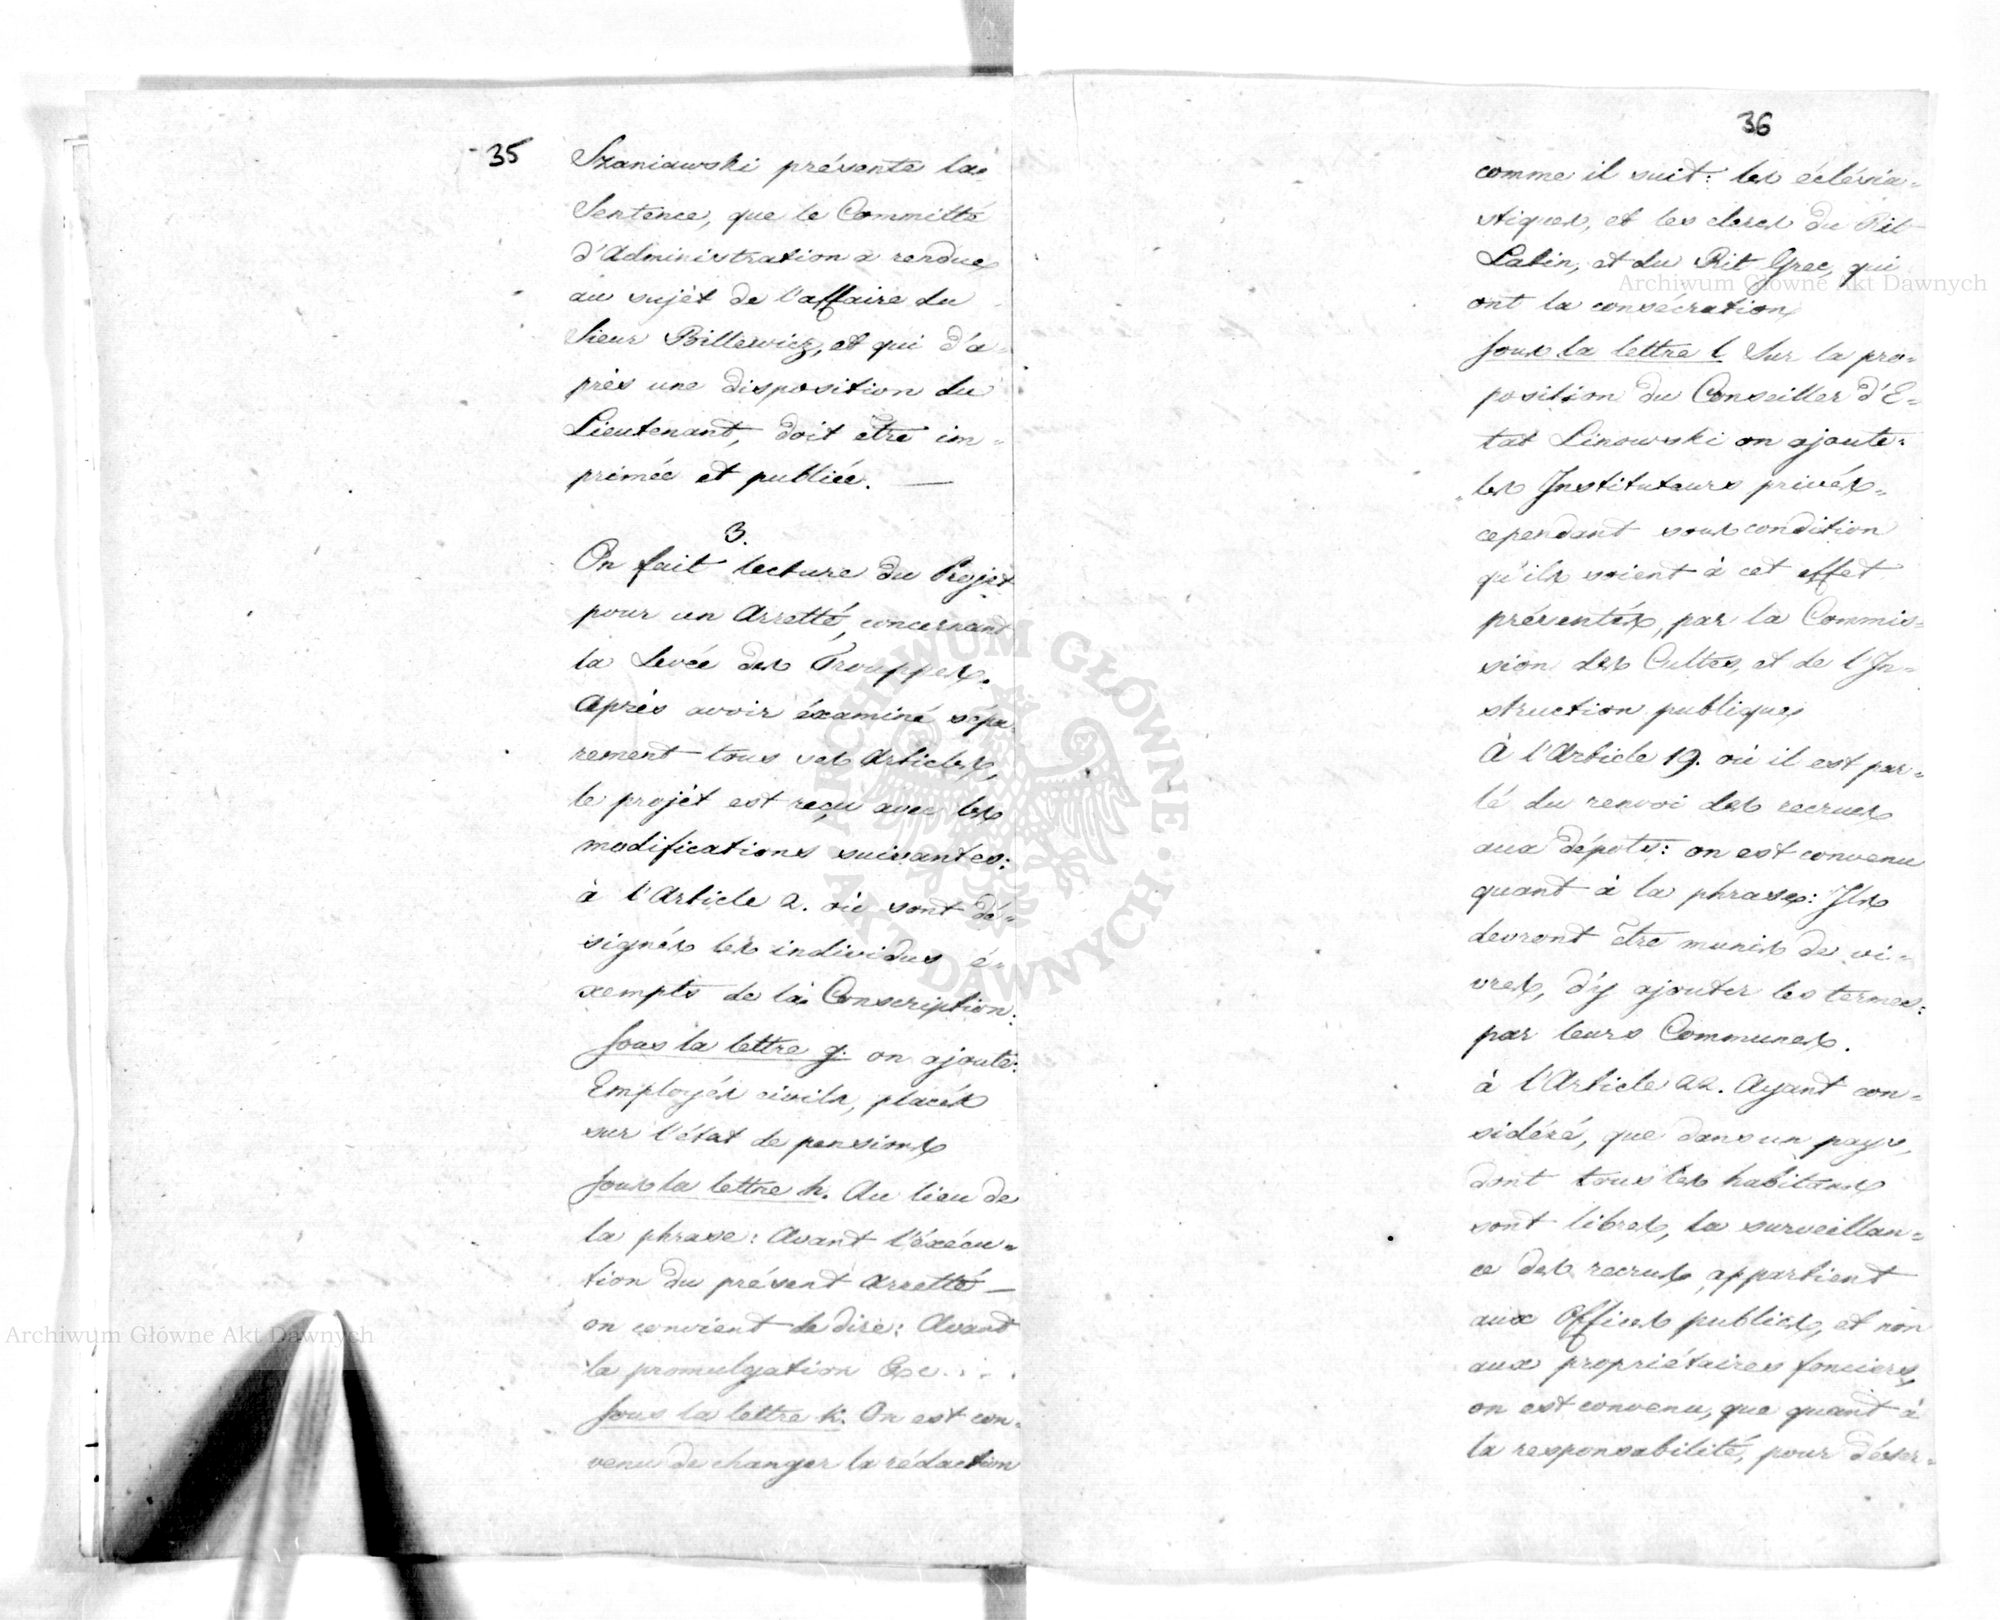 35
Szaniawski présente la
Sentence, que le Committé
d'Administration a rendue
au sujèt de l'affaire du
Sieur Billewicz, et qui d'a-
près une disposition du
Lieutenant, doit etre im-
primée et publiée. —
3.
On fait lecture du Projet
pour un Arretté, concernant
la Levée des Trouppes.
Après avoir éxaminé sépa-
rement tous ses Articles,
le projèt est reçu avec les
modifications suivantes:
à l'Article 2. où sont dé-
signés les individus é-
xempts de la Conscription:
Sous la lettre g. on ajoute:
Employés civils, placés
sur l'état de pensions
Sous la lettre h. Au lieu de
la phrase: Avant l'éxécu-
tion du présent Arretté —
on convient de dire: Avant
la promulgation &c...
Sous la lettre k. On est con-
venu de changer la rédaction
36
comme il suit: les éclésia-
stiques, et les clercs du Rit
Latin, et du Rit Grec, qui
ont la consécration
Sous la lettre l Sur la pro-
position du Conseiller d'E-
tat Linowski on ajoute:
"les Instituteurs privés"
cependant sous condition
qu'ils soient à cet effet
présentés, par la Commis-
sion des Cultes, et de l'In-
struction publique
À l'Article 19. où il est par-
lé du renvoi des recrues
aux dépots: on est convenu
quant à la phrase: Ils
devront être munis de vi-
vres, d'y ajouter les termes:
par leurs Communes.
à l'Article 22. Ayant con-
sidéré, que dans un pays,
dont tous les habitans
sont libres, la surveillan-
ce des recrues, appartient
aux Offices publics, et non
aux propriétaires fonciers,
on est convenu, que quant à
la responsabilité, pour déser-
Archiwum Główne Akt Dawnych
Archiwum Główne Akt Dawnych
ARCHIWUM GŁÓWNE AKT DAWNYCH